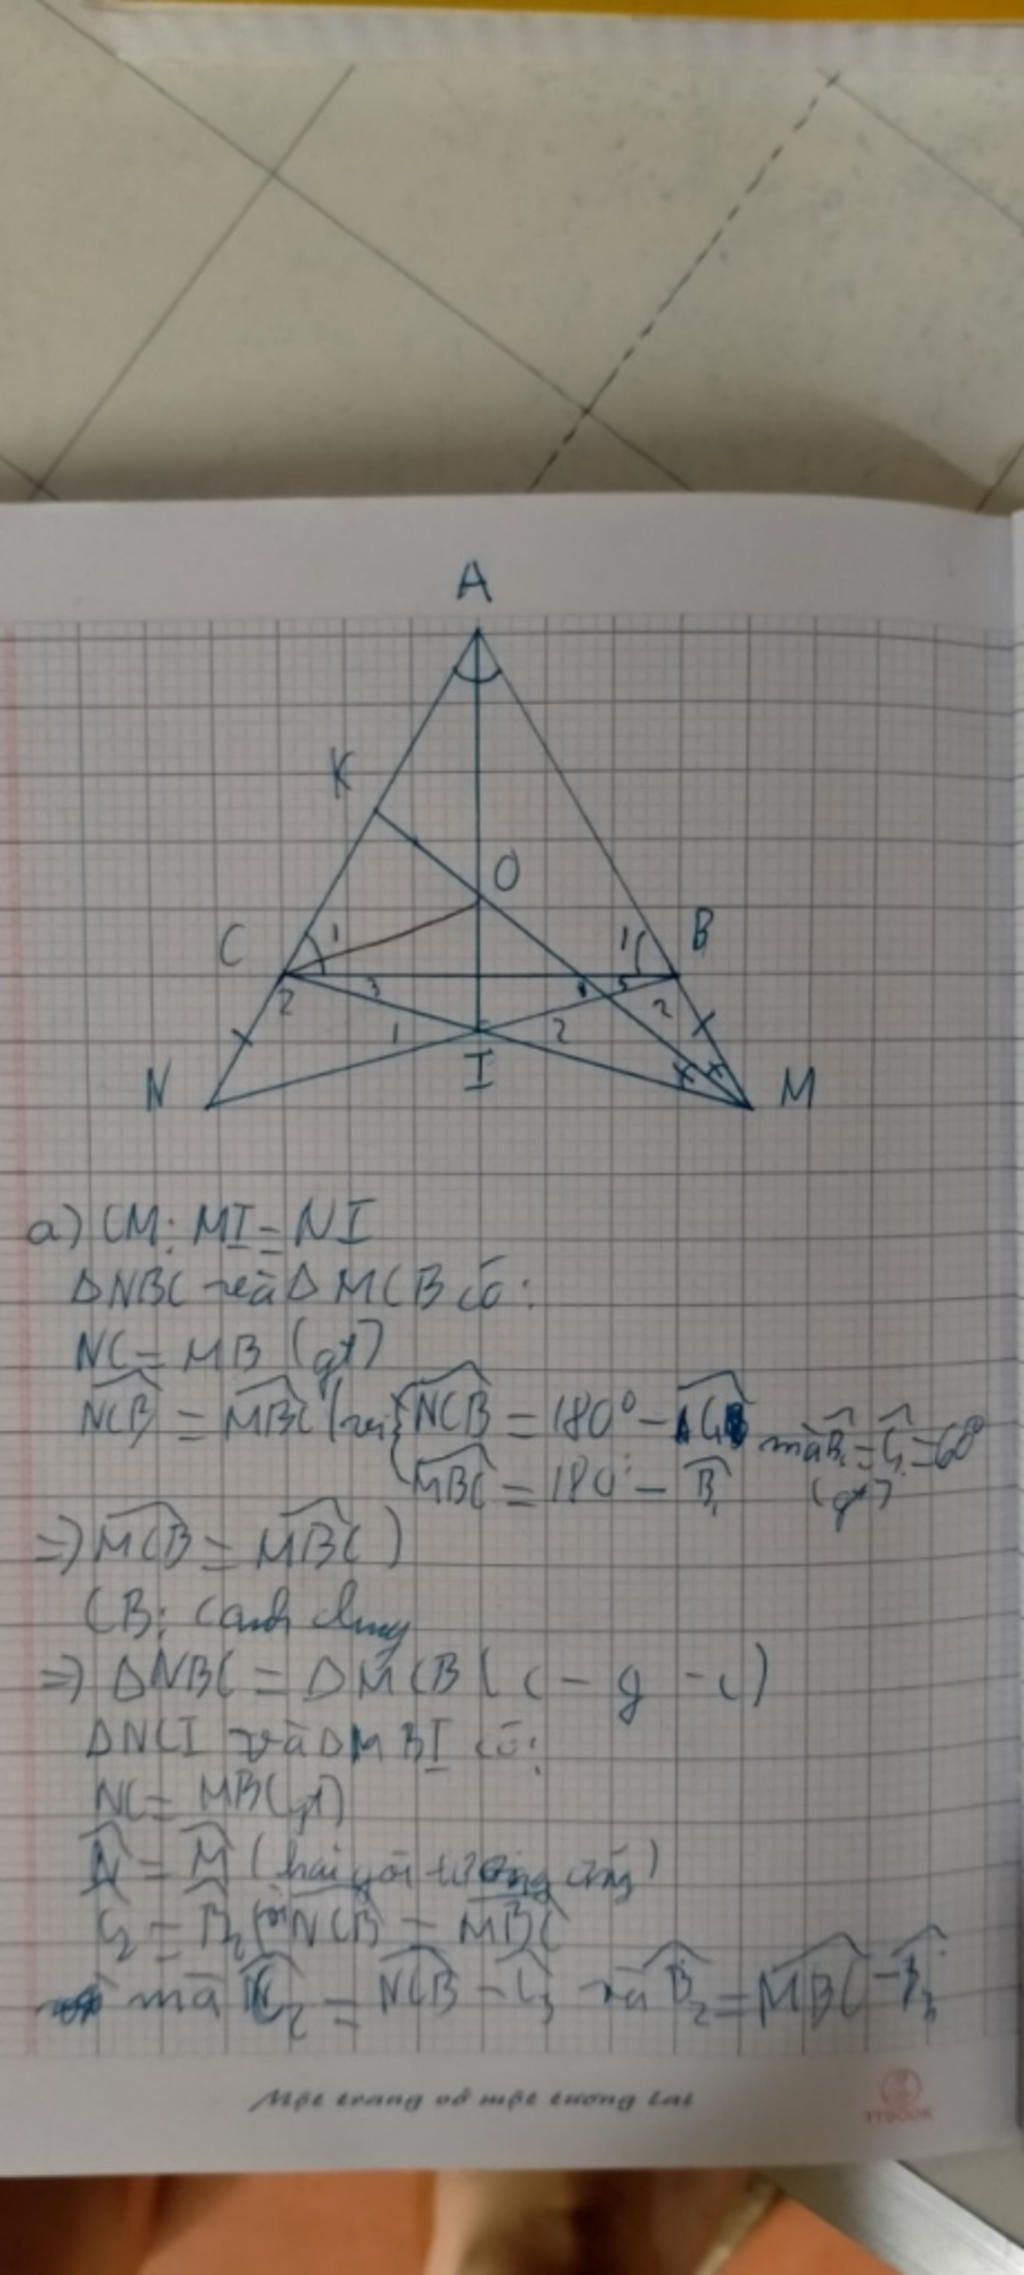 A
K
O
C 1 1 B
2 3 4 5 2
1 2
N I M
a) CM: MI = NI
ΔNBC và ΔMCB có:
NC = MB (gt)
NCB = MBC (vì { NCB = 180° - mà B₁ = C₁ = 60°
MBC = 180° - B₁ (gt)
=> MCB = MBC )
CB: cạnh chung
=> ΔNBC = ΔMCB (c - g - c)
ΔNCI và ΔMBI có:
NC = MB (gt)
N = M (hai góc tương ứng)
C₂ = B₂ (vì NCB = MBC
mà C₂ = NCB - C₃ và B₂ = MBC - B₃
Một trang vở một tương lai
TTBOOK